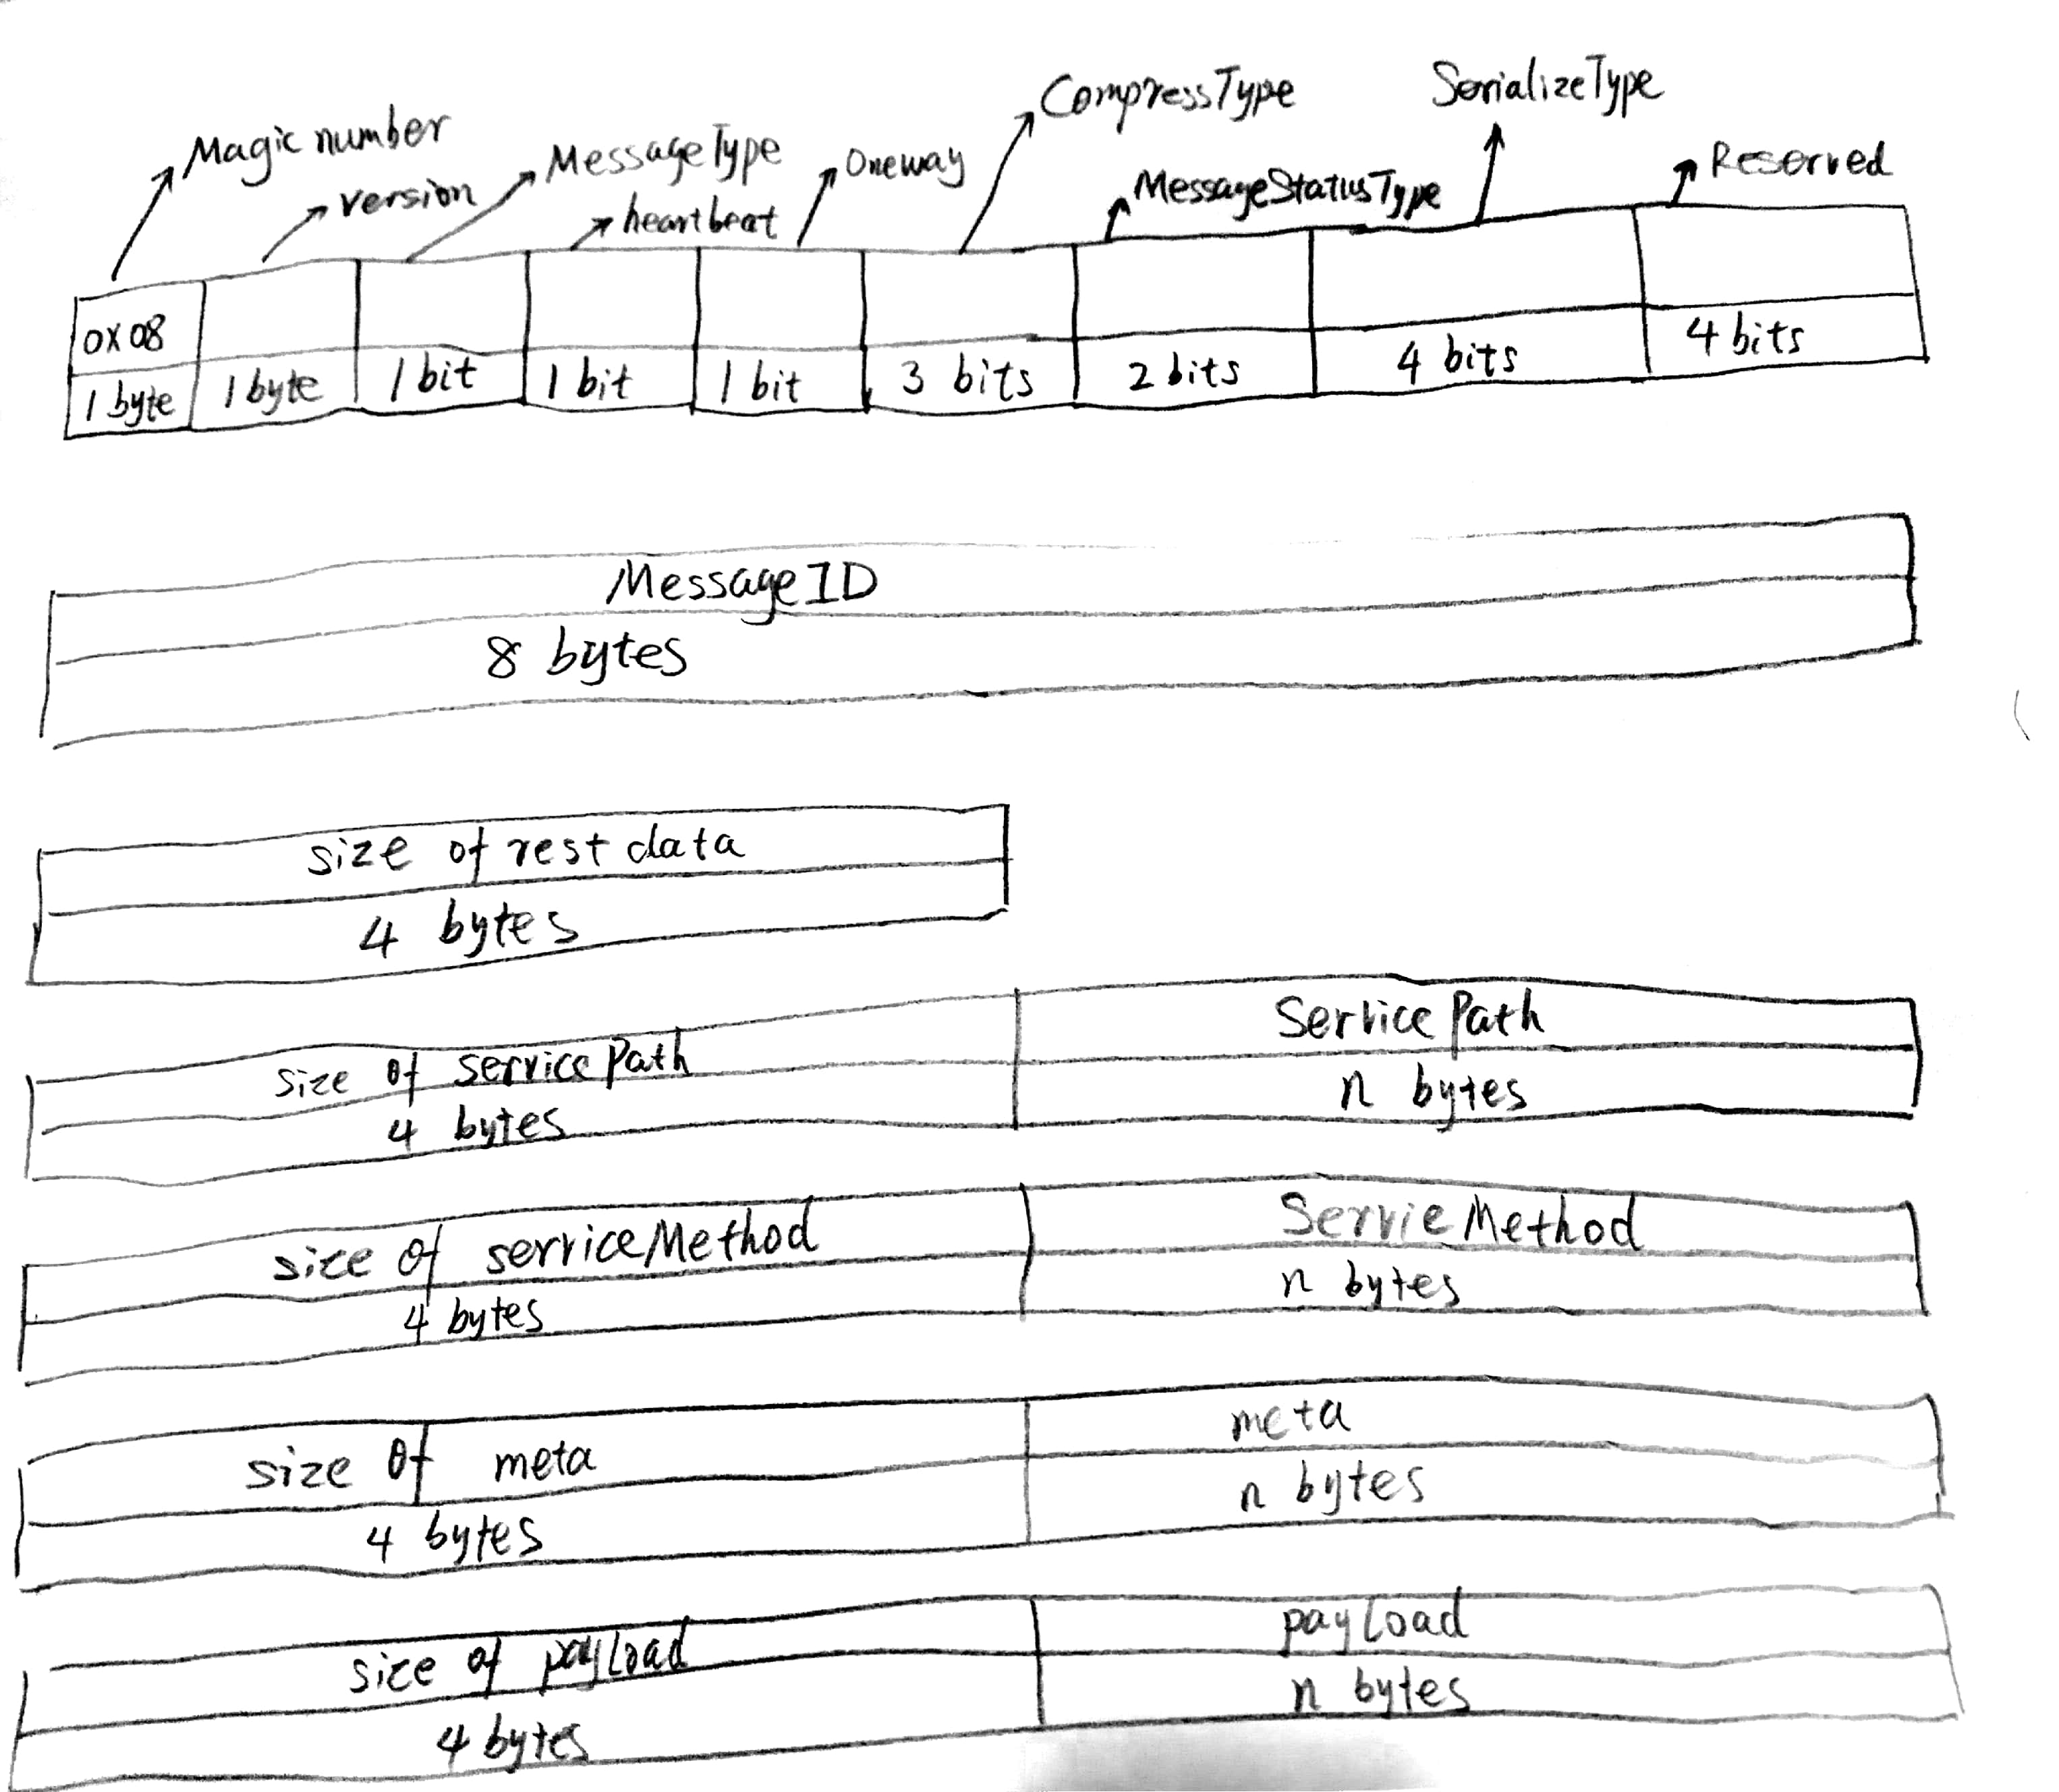 Magic number
version
MessageType
heartbeat
Oneway
CompressType
MessageStatusType
SerializeType
Reserved
0x08
1 byte 1 byte 1 bit 1 bit 1 bit 3 bits 2 bits 4 bits 4 bits
MessageID
8 bytes
size of rest data
4 bytes
size of servicePath ServicePath
4 bytes n bytes
size of serviceMethod ServieMethod
4 bytes n bytes
size of meta meta
4 bytes n bytes
size of payload payload
4 bytes n bytes